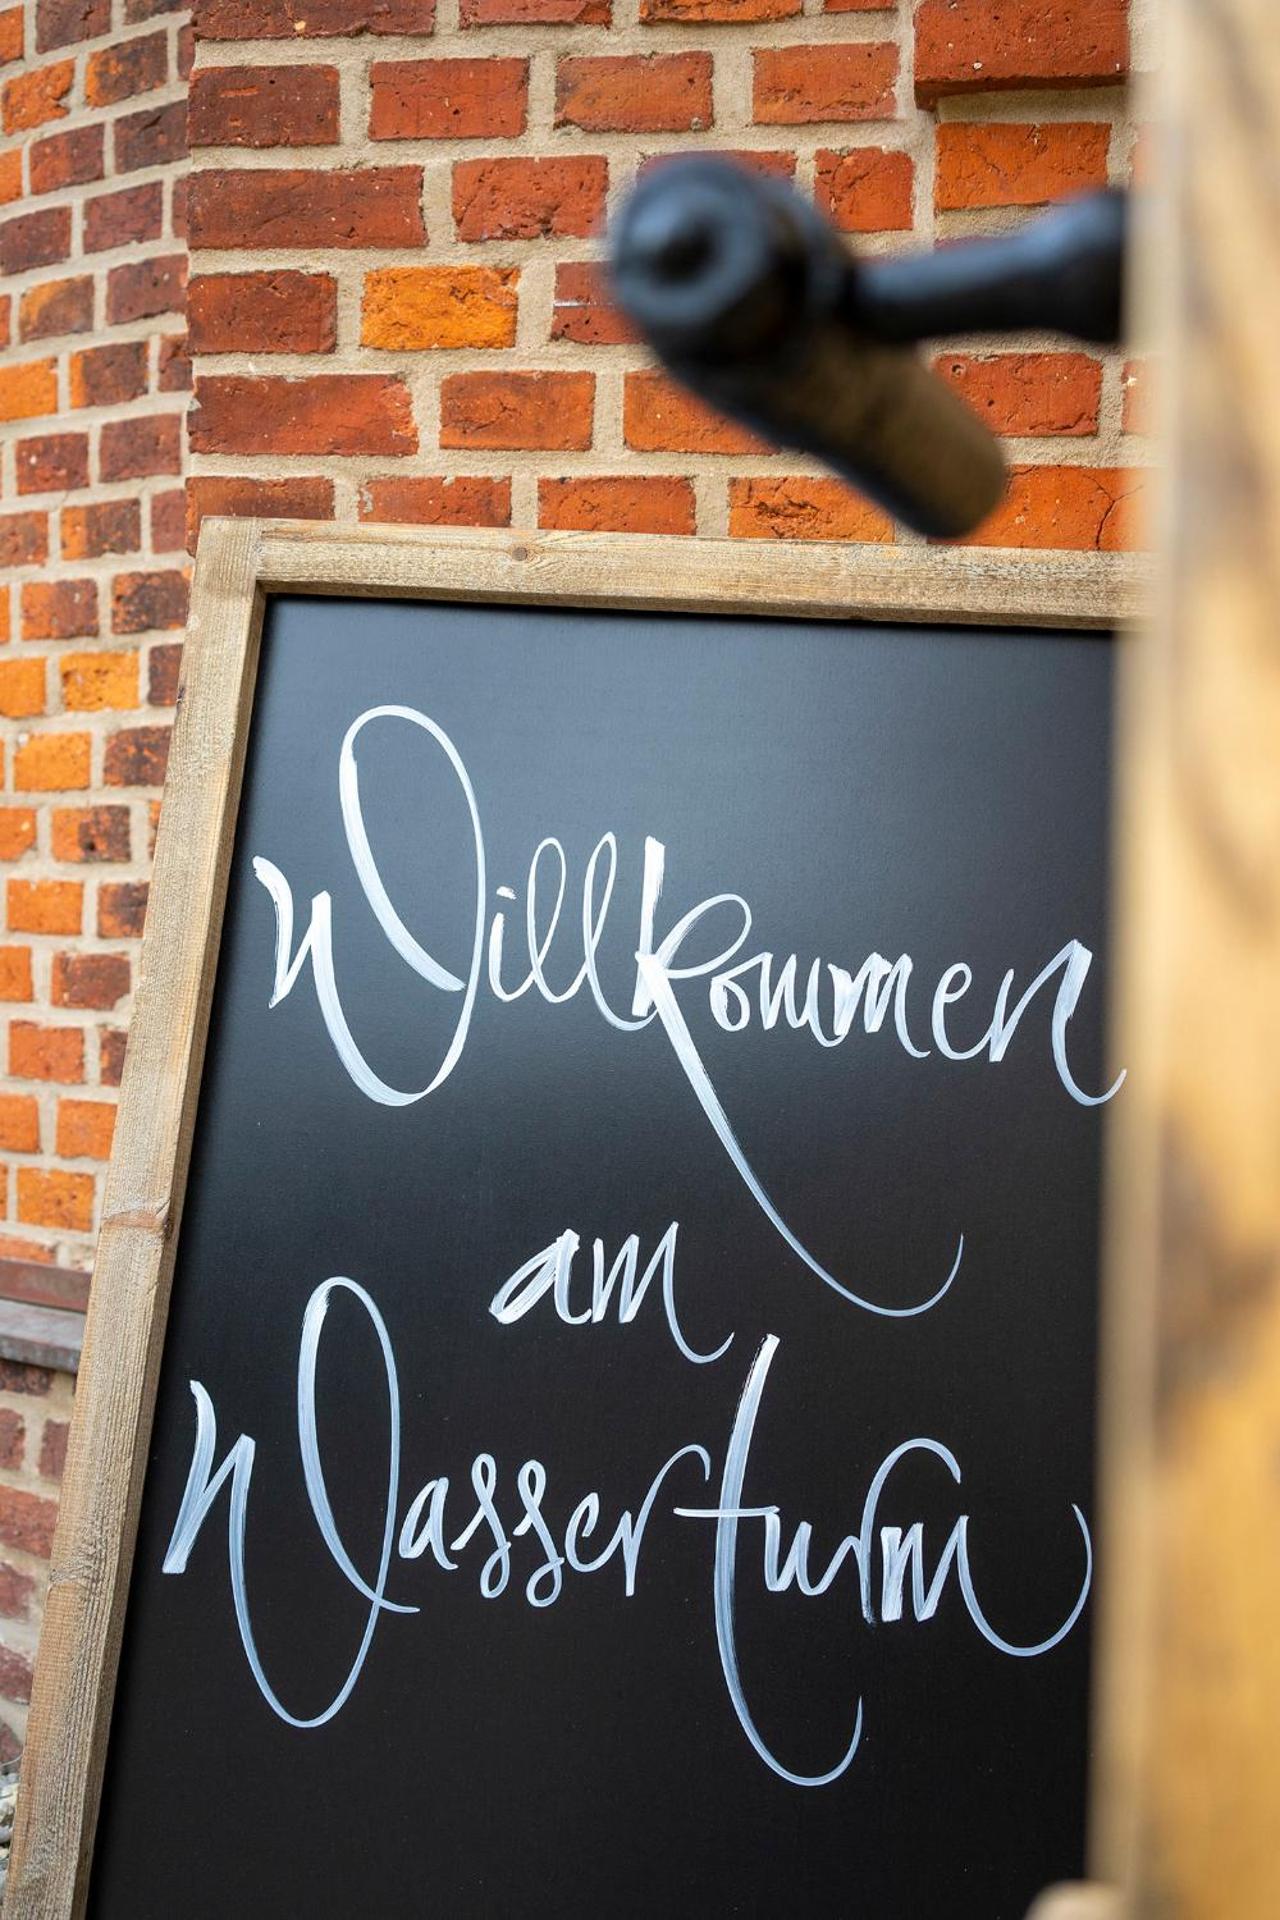 Willkommen
am
Wasserturm